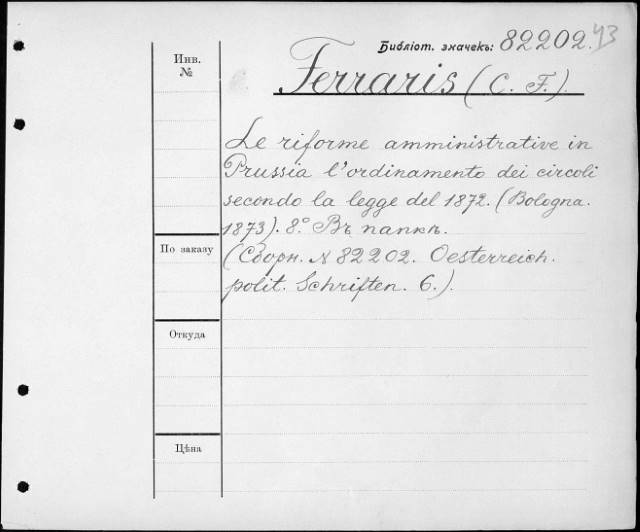 Библіот. значекъ: 82202. 43
Инв.
№
Ferraris (C. F.).
Le riforme amministrative in
Prussia l'ordinamento dei circoli
secondo la legge del 1872. (Bologna.
1873). 8.° Въ папкѣ.
По заказу
(Сборн. N 82202. Oesterreich.
polit. Schriften. 6.).
Откуда
Цѣна